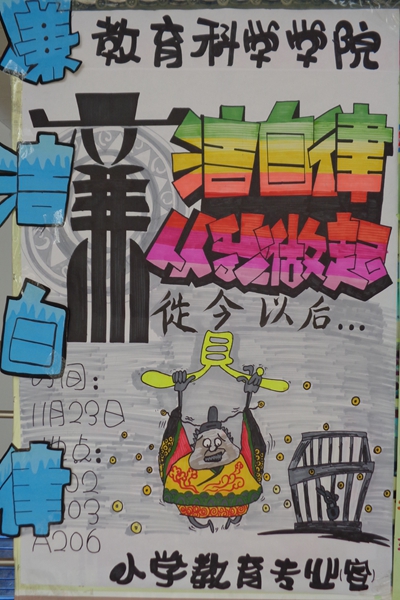 廉洁自律
教育科学学院
廉洁自律
从我做起
從今以后...
貝
时间:
11月23日
地点:
02
03
A206
小学教育专业